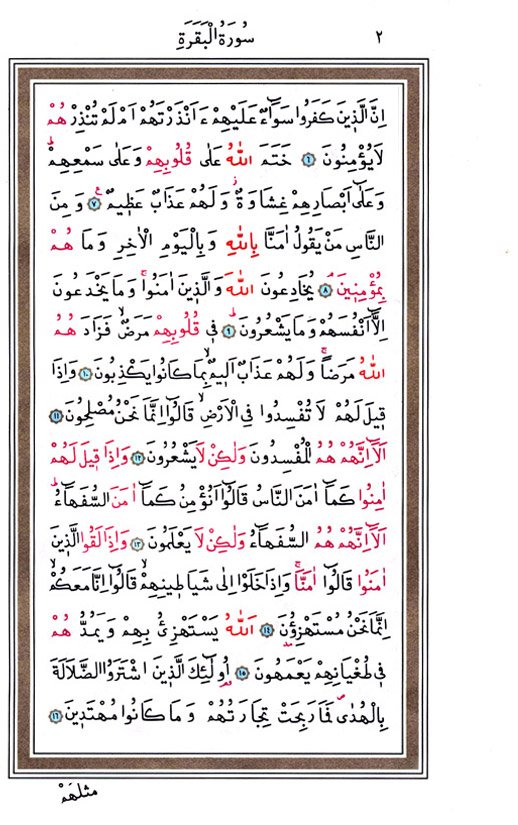 ٢ سُورَةُ الْبَقَرَةِ
اِنَّ الَّذ۪ينَ كَفَرُوا سَوَٓاءٌ عَلَيْهِمْ ءَاَنْذَرْتَهُمْ اَمْ لَمْ تُنْذِرْهُمْ
لَا يُؤْمِنُونَ ﴿٦﴾ خَتَمَ اللّٰهُ عَلٰى قُلُوبِهِمْ وَعَلٰى سَمْعِهِمْۜ
وَعَلٰٓى اَبْصَارِهِمْ غِشَاوَةٌۘ وَلَهُمْ عَذَابٌ عَظ۪يمٌ۟ ﴿٧﴾ وَمِنَ
النَّاسِ مَنْ يَقُولُ اٰمَنَّا بِاللّٰهِ وَبِالْيَوْمِ الْاٰخِرِ وَمَا هُمْ
بِمُؤْمِن۪ينَۢ ﴿٨﴾ يُخَادِعُونَ اللّٰهَ وَالَّذ۪ينَ اٰمَنُواۚ وَمَا يَخْدَعُونَ
اِلَّٓا اَنْفُسَهُمْ وَمَا يَشْعُرُونَۜ ﴿٩﴾ ف۪ي قُلُوبِهِمْ مَرَضٌۙ فَزَادَهُمُ
اللّٰهُ مَرَضًاۚ وَلَهُمْ عَذَابٌ اَل۪يمٌۙ بِمَا كَانُوا يَكْذِبُونَ ﴿١٠﴾ وَاِذَا
ق۪يلَ لَهُمْ لَا تُفْسِدُوا فِي الْاَرْضِۙ قَالُٓوا اِنَّمَا نَحْنُ مُصْلِحُونَ ﴿١١﴾
اَلَٓا اِنَّهُمْ هُمُ الْمُفْسِدُونَ وَلٰكِنْ لَا يَشْعُرُونَ ﴿١٢﴾ وَاِذَا ق۪يلَ لَهُمْ
اٰمِنُوا كَمَٓا اٰمَنَ النَّاسُ قَالُٓوا اَنُؤْمِنُ كَمَٓا اٰمَنَ السُّفَهَٓاءُۜ
اَلَٓا اِنَّهُمْ هُمُ السُّفَهَٓاءُ وَلٰكِنْ لَا يَعْلَمُونَ ﴿١٣﴾ وَاِذَا لَقُوا الَّذ۪ينَ
اٰمَنُوا قَالُٓوا اٰمَنَّاۚ وَاِذَا خَلَوْا اِلٰى شَيَاط۪ينِهِمْۙ قَالُٓوا اِنَّا مَعَكُمْۙ
اِنَّمَا نَحْنُ مُسْتَهْزِؤُ۫نَ ﴿١٤﴾ اَللّٰهُ يَسْتَهْزِئُ بِهِمْ وَيَمُدُّهُمْ
ف۪ي طُغْيَانِهِمْ يَعْمَهُونَ ﴿١٥﴾ اُو۬لٰٓئِكَ الَّذ۪ينَ اشْتَرَوُا الضَّلَالَةَ
بِالْهُدٰىۖ فَمَا رَبِحَتْ تِجَارَتُهُمْ وَمَا كَانُوا مُهْتَد۪ينَ ﴿١٦﴾
مَثَلُهُمْ